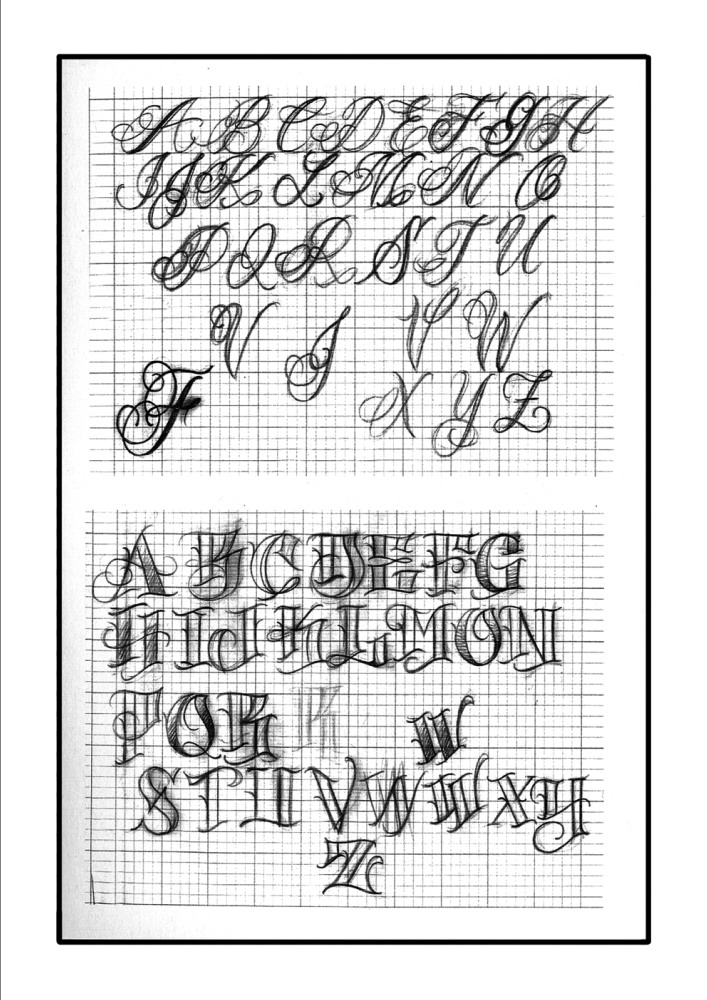 A B C D E F G H
I J K L M N O
P Q R S T U
V J V W
F X Y Z
A B C D E F G
H I J K L M O N
P Q R R W
S T U V W W X Y
Z